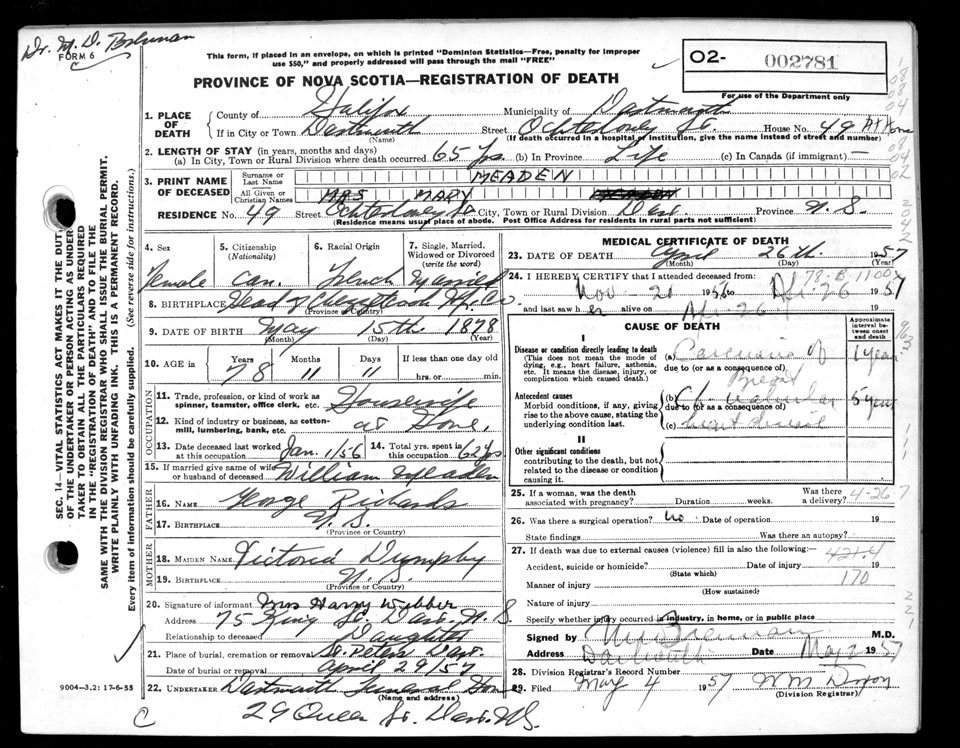 Dr. M. D. Brennan
FORM 6
This form, if placed in an envelope, on which is printed "Dominion Statistics—Free, penalty for improper
use $50," and properly addressed will pass through the mail "FREE"
PROVINCE OF NOVA SCOTIA—REGISTRATION OF DEATH
O2- 002781
For use of the Department only
1. PLACE OF DEATH
County of Halifax Municipality of Dartmouth
If in City or Town Dartmouth Street Ochterloney St. House No. 49 At Home
(Name) (If death occurred in a hospital or institution, give the name instead of street and number)
2. LENGTH OF STAY (in years, months and days)
(a) In City, Town or Rural Division where death occurred 65 yrs (b) In Province Life (c) In Canada (if immigrant) —
3. PRINT NAME OF DECEASED
Surname or Last Name MEADEN
All Given or Christian Names MRS MARY
RESIDENCE No. 49 Street Ochterloney St City, Town or Rural Division Dart Province N. S.
(Residence means usual place of abode. Post Office Address for residents in rural parts not sufficient)
4. Sex Female
5. Citizenship (Nationality) Can.
6. Racial Origin French
7. Single, Married, Widowed or Divorced (write the word) Married
8. BIRTHPLACE Head of Chezzetcook Hfx. Co.
(Province or Country)
9. DATE OF BIRTH May 15th 1878
(Month) (Day) (Year)
10. AGE Years 78 Months 11 Days 11 If less than one day old
hrs. or min.
OCCUPATION
11. Trade, profession, or kind of work as spinner, teamster, office clerk, etc. Housewife
12. Kind of industry or business, as cotton-mill, lumbering, bank, etc. at Home.
13. Date deceased last worked at this occupation Jan. 1/56
14. Total yrs. spent in this occupation 62 yrs
15. If married give name of wife or husband of deceased William Meaden
FATHER
16. Name George Richards
17. Birthplace N. S.
(Province or Country)
MOTHER
18. Maiden Name Victoria Dumphy
19. Birthplace N. S.
(Province or Country)
20. Signature of informant Mrs Harry Webber
Address 75 King St. Dart. N. S.
Relationship to deceased Daughter
21. Place of burial, cremation or removal St. Peters Dart.
Date of burial or removal April 29/57
22. Undertaker Dartmouth Funeral Home
(Name and address)
29 Queen St. Dart. NS.
9004—3.2: 17-6-55
C
MEDICAL CERTIFICATE OF DEATH
23. DATE OF DEATH April 26th 1957
(Month) (Day) (Year)
24. I HEREBY CERTIFY that I attended deceased from:
78-B-1100
Nov 20 1956 to Apr. 26 1957
and last saw her alive on Apr. 26 19
CAUSE OF DEATH
Approximate interval between onset and death
I
Disease or condition directly leading to death
(This does not mean the mode of dying, e.g., heart failure, asthenia, etc. It means the disease, injury, or complication which caused death.)
(a) Carcinoma of Breast 1 year
due to (or as a consequence of)
Antecedent causes
Morbid conditions, if any, giving rise to the above cause, stating the underlying condition last.
(b) Ch. valvular 5 years
due to (or as a consequence of)
(c) heart disease
II
Other significant conditions
contributing to the death, but not related to the disease or condition causing it.
25. If a woman, was the death associated with pregnancy? Duration weeks. Was there a delivery?
4-26 7
26. Was there a surgical operation? No Date of operation 19
State findings Was there an autopsy?
27. If death was due to external causes (violence) fill in also the following:—
421.4
Accident, suicide or homicide? Date of injury 19
(State which)
170
Manner of injury
(How sustained)
Nature of injury
Specify whether injury occurred in industry, in home, or in public place
Signed by M. Brennan M.D.
Address Dartmouth Date May 2 1957
28. Division Registrar's Record Number
29. Filed May 4 1957 W M Dixon
(Division Registrar)
SEC. 14—VITAL STATISTICS ACT MAKES IT THE DUTY
OF THE UNDERTAKER OR PERSON ACTING AS UNDER-
TAKER TO OBTAIN ALL THE PARTICULARS REQUIRED
IN THE "REGISTRATION OF DEATH" AND TO FILE THE
SAME WITH THE DIVISION REGISTRAR WHO SHALL ISSUE THE BURIAL PERMIT.
WRITE PLAINLY WITH UNFADING INK. THIS IS A PERMANENT RECORD.
Every item of information should be carefully supplied. (See reverse side for instructions.)